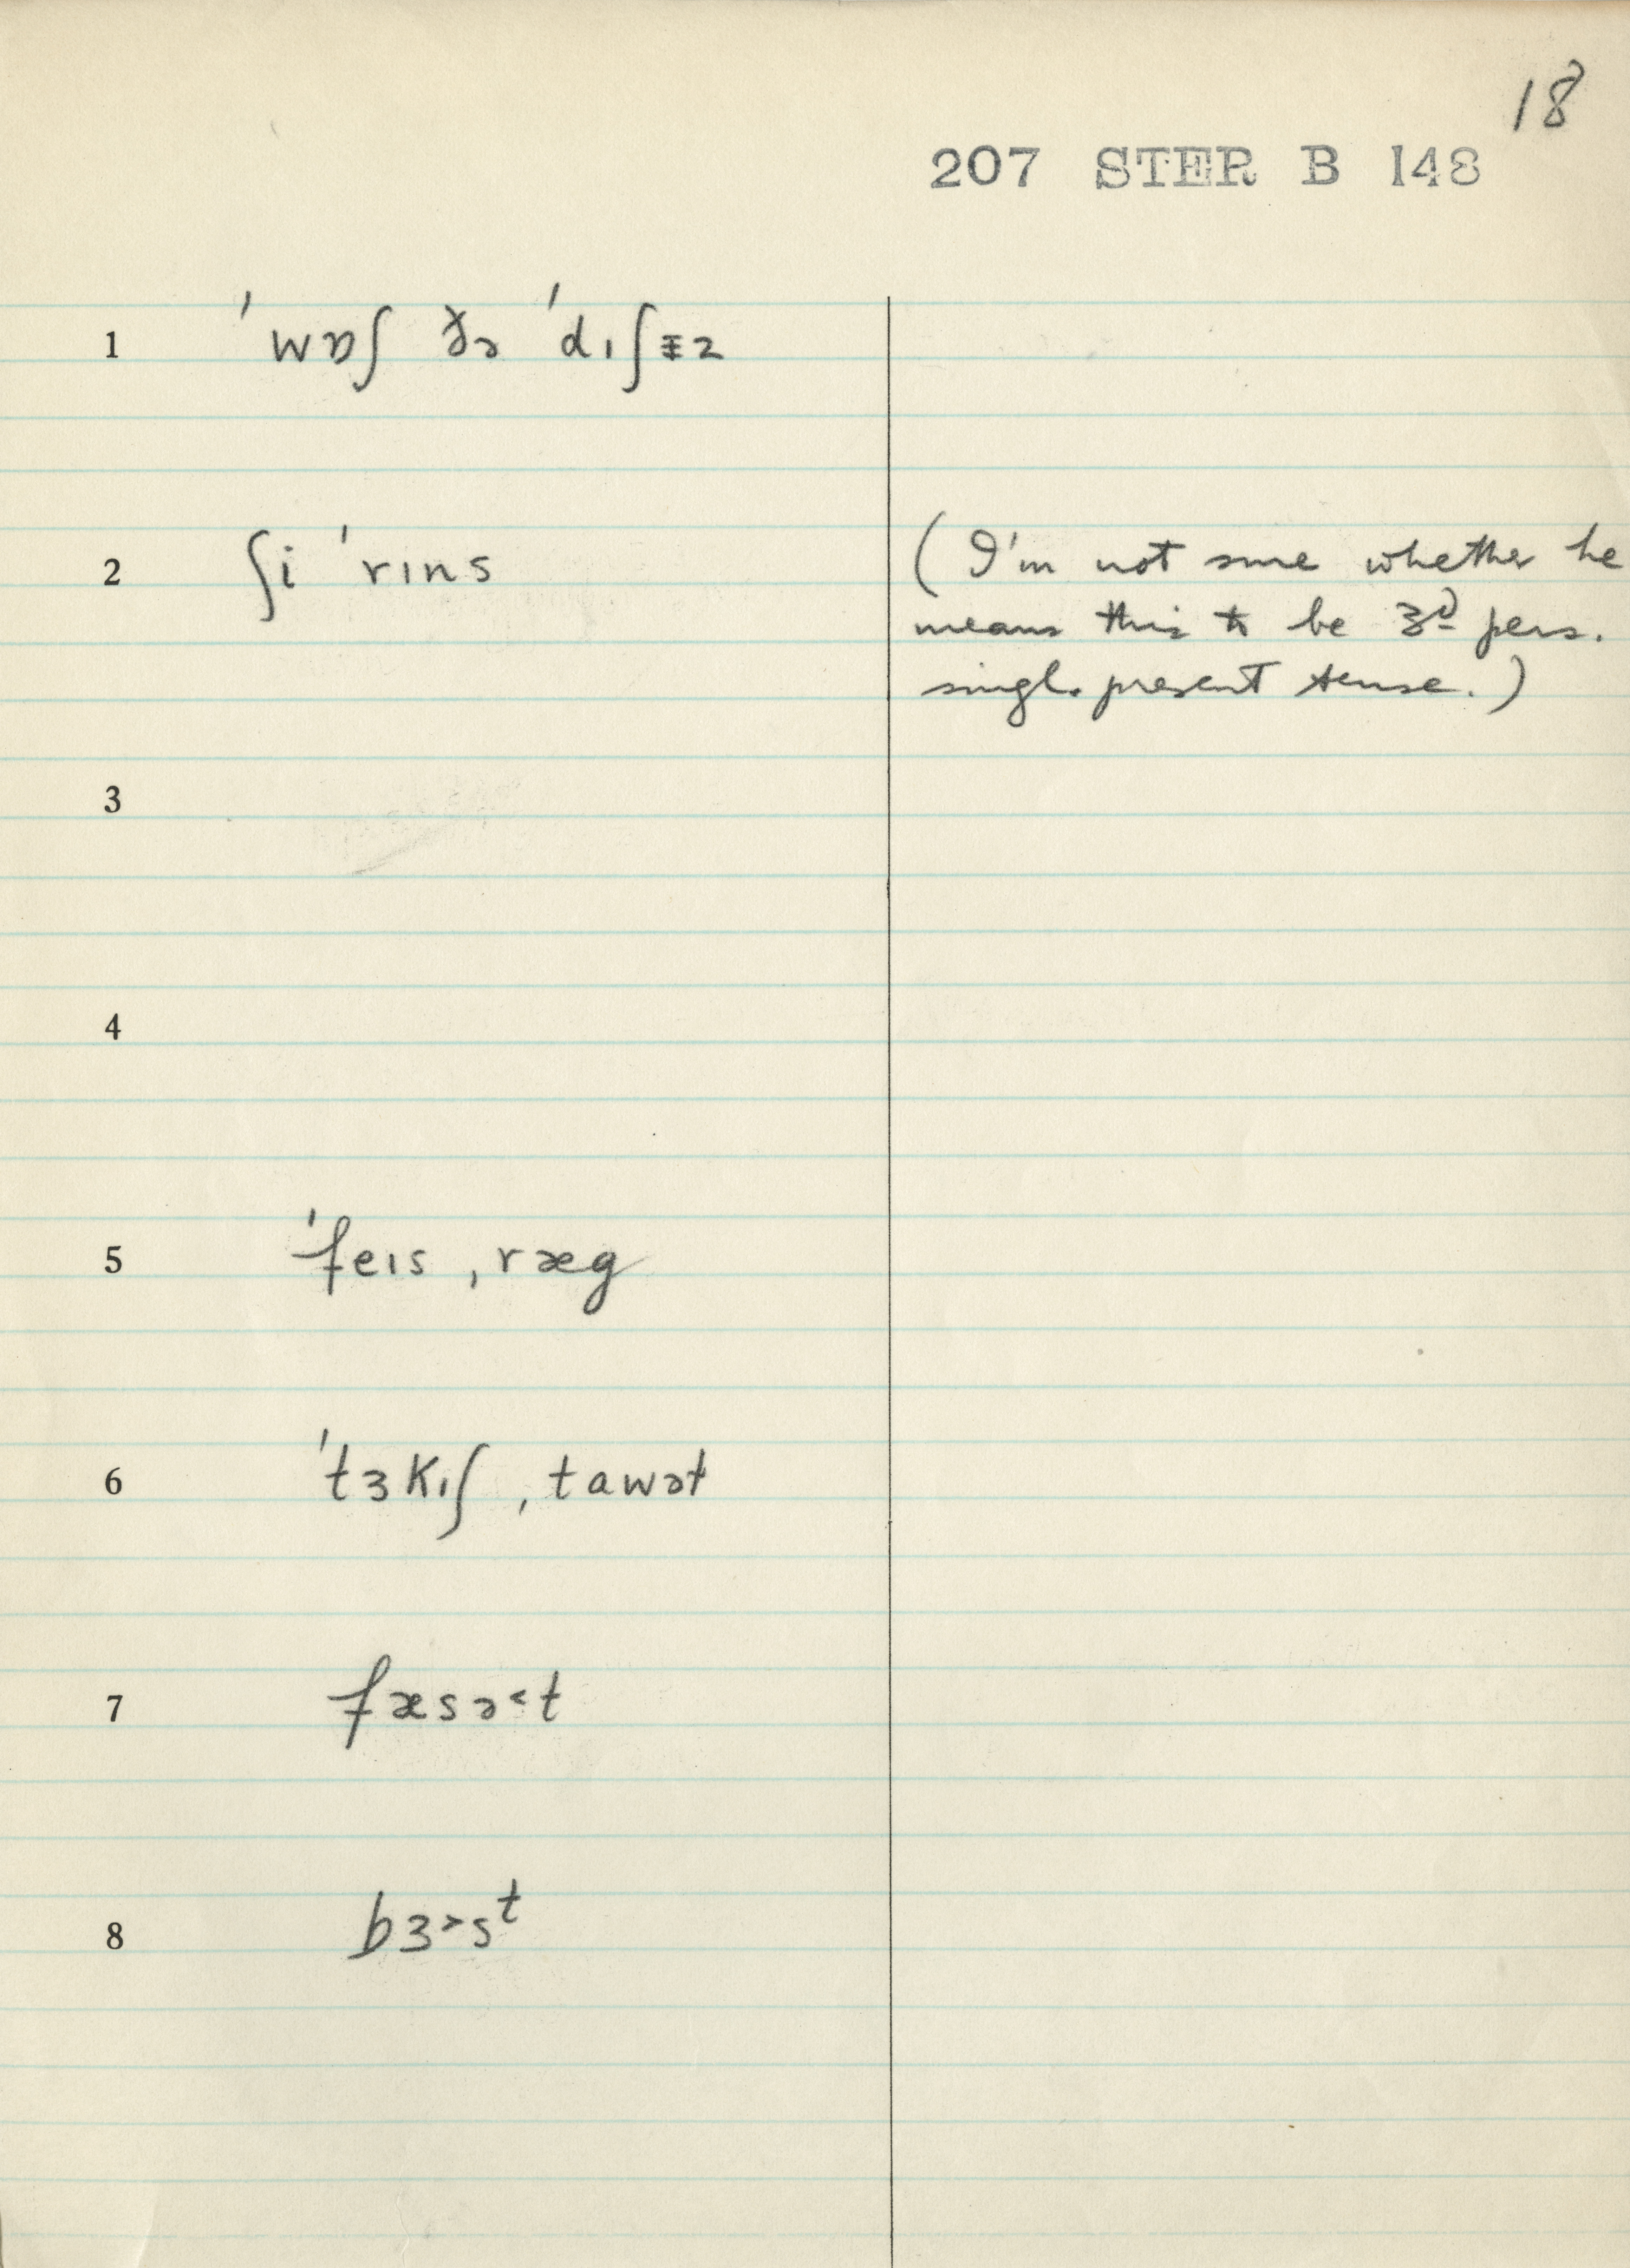 18
207 STER B 148
1 ˈwɒʃ ðə ˈdɪʃɨz
2 ʃi ˈrɪns (I'm not sure whether he
means this to be 3d pers.
singl. present tense.)
3
4
5 ˈfeɪs ˌræg
6 ˈtɜkɪʃ ˌtawət
7 fæsə˂t
8 bɜ˃sᵗ